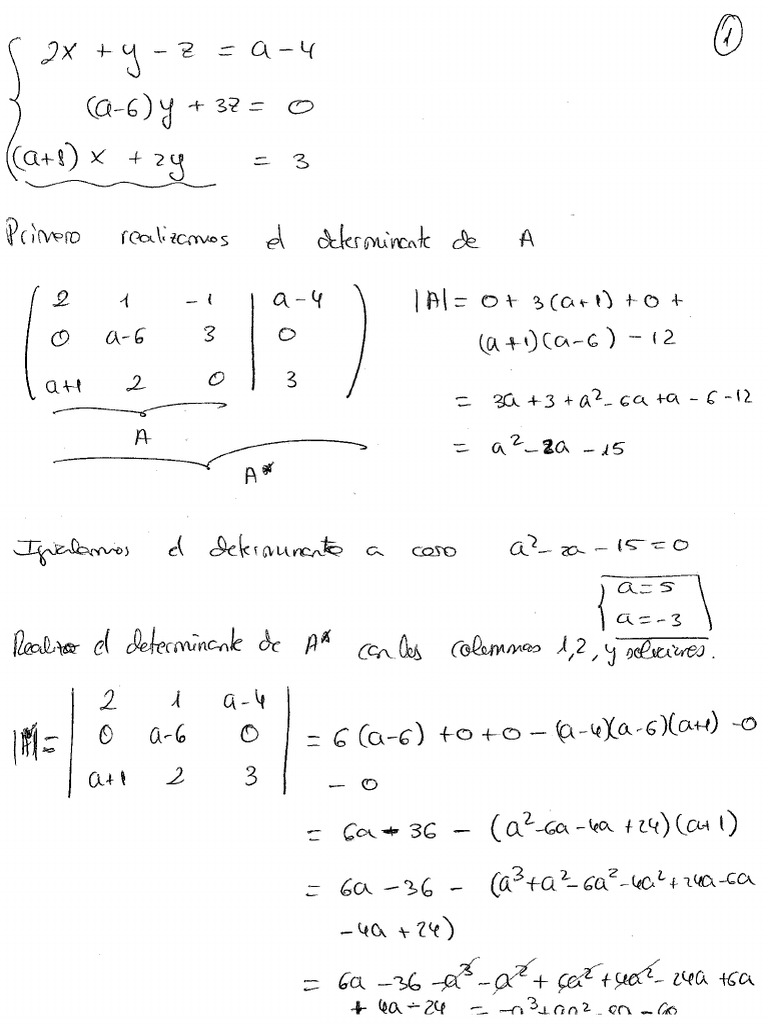 1
2x + y - z = a-4
(a-6)y + 3z = 0
(a+1)x + 2y = 3
Primero realizamos el determinante de A
2 1 -1 | a-4
0 a-6 3 | 0
a+1 2 0 | 3
A
A*
|A| = 0 + 3(a+1) + 0 +
(a+1)(a-6) - 12
= 3a + 3 + a² - 6a + a - 6 - 12
= a² - 2a - 15
Igualamos el determinante a cero a² - 2a - 15 = 0
a = 5
a = -3
Realizo el determinante de A* con las columnas 1,2, y soluciones.
= | 2 1 a-4 |
| 0 a-6 0 | = 6(a-6) + 0 + 0 - (a-4)(a-6)(a+1) - 0
| a+1 2 3 | - 0
= 6a - 36 - (a² - 6a - 4a + 24)(a+1)
= 6a - 36 - (a³ + a² - 6a² - 4a² + 24a - 6a
- 4a + 24)
= 6a - 36 - a³ - a² + 6a² + 4a² - 24a + 6a
+ 4a - 24 =